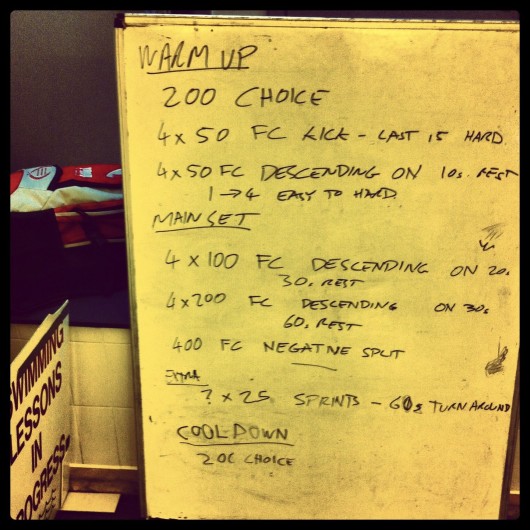 WARM UP
200 CHOICE
4x50 FC KICK - LAST 15 HARD
4x50 FC DESCENDING ON 10s REST
1 → 4 EASY TO HARD
MAIN SET
4 x 100 FC DESCENDING ON 20s
30s REST
4x200 FC DESCENDING ON 30s
60s REST
400 FC NEGATIVE SPLIT
EXTRA
? x 25 SPRINTS - 60s TURN AROUND
COOL DOWN
200 CHOICE
SWIMMING
LESSONS
IN
PROGRESS